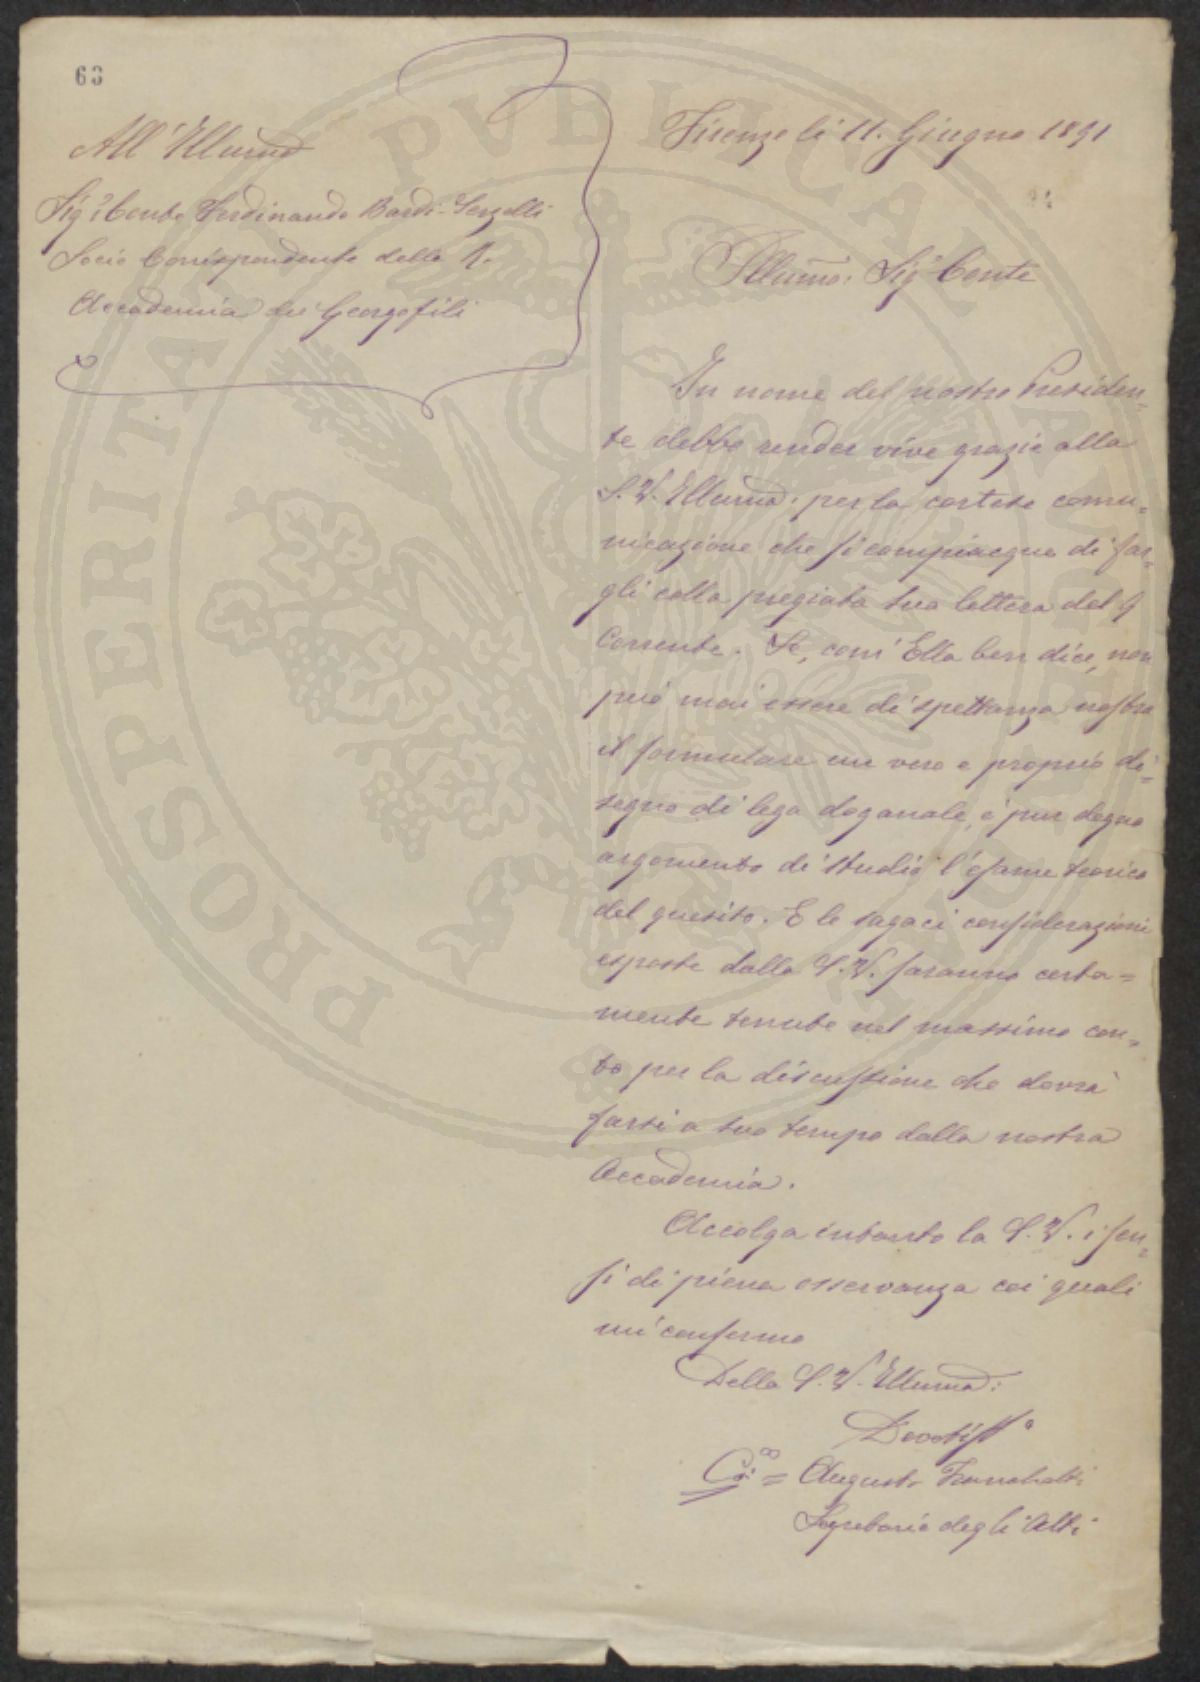 63
All' Illumo
Sigr Conte Ferdinando Bardi-Serzelli
Socio Corrispondente della R.
Accademia dei Georgofili
Firenze li 11. Giugno 1891
Illumo: Sigr Conte
In nome del nostro Presiden=
te debbo render vive grazie alla
S. V. Illuma: per la cortese comu=
nicazione che si compiacque di far=
gli colla pregiata sua lettera del 9
Corrente. Se, com' Ella ben dice, non
può mai essere di spettanza nostra
il formulare un vero e proprio di=
segno di lega doganale, è pur degno
argomento di studio l'esame teorico
del quesito. E le sagaci considerazioni
esposte dalla S. V. saranno certa=
mente tenute nel massimo con=
to per la discussione che dovrà
farsi a suo tempo dalla nostra
Accademia.
Accolga intanto la S. V. i sen=
si di piena osservanza coi quali
mi confermo
Della S. V. Illuma:
Devotisso
= Augusto
Segretario degli Atti
PROSPERITATI PVBLICAE